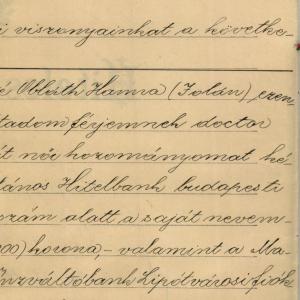 i viszonyainkat a követke-
é Obláth Hanna (Zolán) ezen-
tadom férjemnek doctor
át női hozományomat ké-
tános Hitelbank budapesti
szám alatt a saját nevem-
00) korona,- valamint a Ma-
énzváltóbank Lipótvárosi fiók